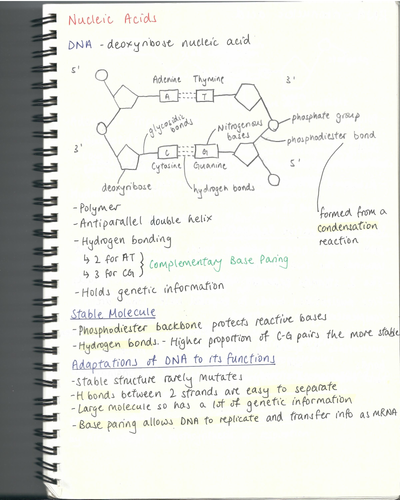 Nucleic Acids
DNA - deoxyribose nucleic acid
5'
Adenine Thymine
3'
A T
glycosidic bonds
Nitrogenous bases
phosphate group
phosphodiester bond
3'
C G
Cytosine Guanine
5'
deoxyribose
hydrogen bonds
formed from a
condensation
reaction
- Polymer
- Antiparallel double helix
- Hydrogen bonding
↳ 2 for AT
↳ 3 for CG
} Complementary Base Paring
- Holds genetic information
Stable Molecule
- Phosphodiester backbone protects reactive bases
- Hydrogen bonds. - Higher proportion of C-G pairs the more stable
Adaptations of DNA to its functions
- Stable structure rarely mutates
- H bonds between 2 strands are easy to separate
- Large molecule so has a lot of genetic information
- Base paring allows DNA to replicate and transfer info as mRNA